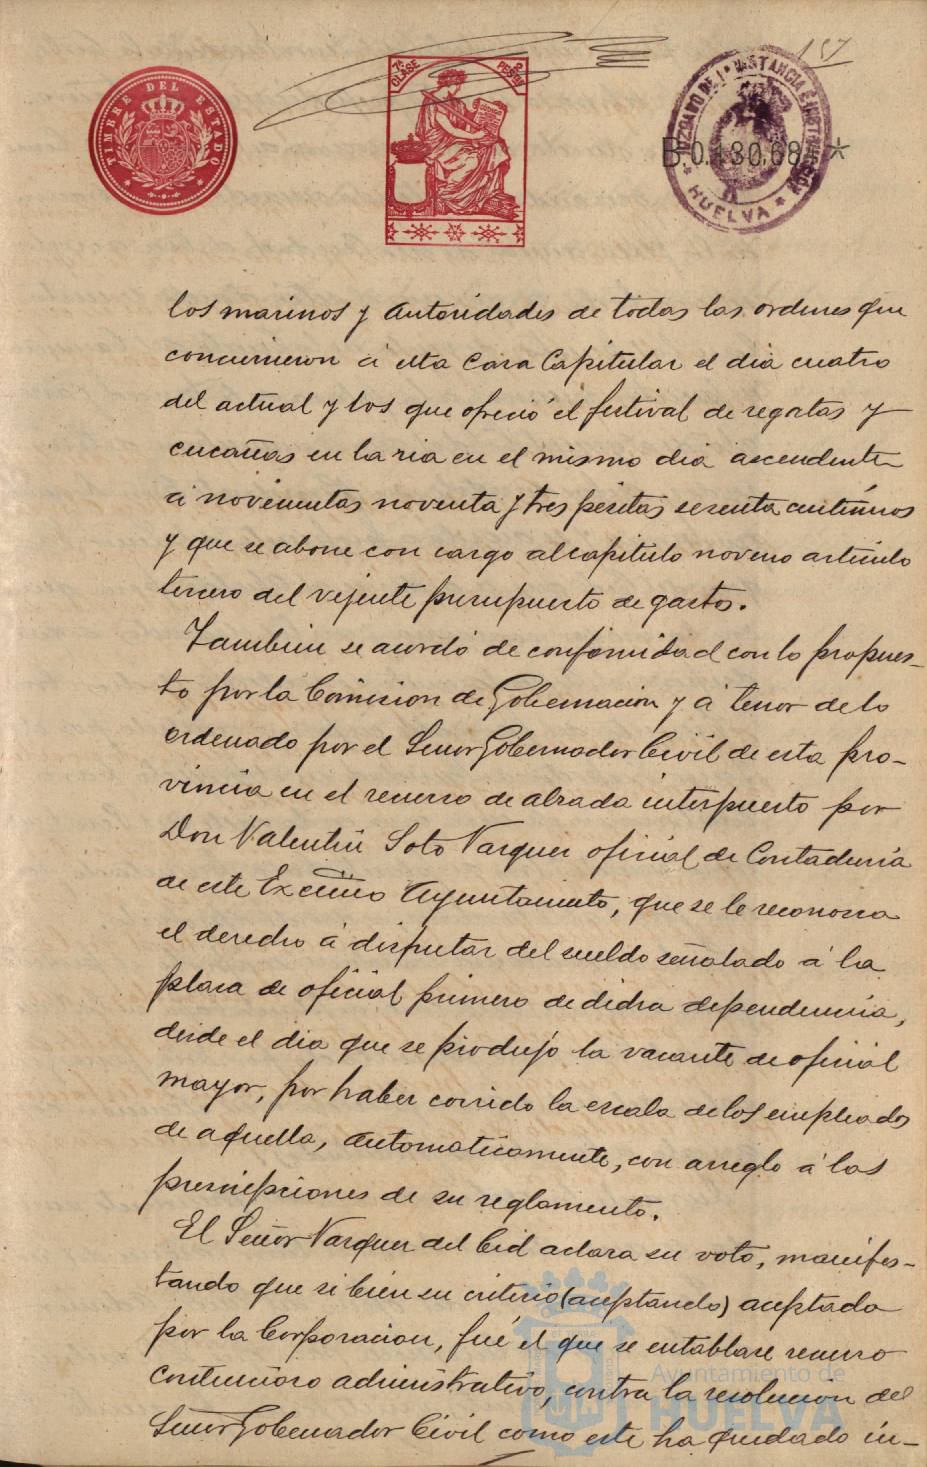 157
TIMBRE DEL ESTADO
7ª CLASE
2 PESETAS
JUZGADO DE 1ª INSTANCIA E INSTRUCCION
* HUELVA *
B.0.130.68 *
los marinos y autoridades de todas las ordenes que
concurrieron á esta Casa Capitular el dia cuatro
del actual y los que ofreció el festival de regatas y
cucañas en la ria en el mismo dia ascendente
á novecientas noventa y tres pesetas sesenta centimos
y que se abone con cargo al capitulo noveno articulo
tercero del vijente presupuesto de gastos.
Tambien se acordó de conformidad con lo propues-
to por la Comision de Gobernacion y á tenor de lo
ordenado por el Señor Gobernador Civil de esta pro-
vincia en el recurso de alzada interpuesto por
Don Valentin Soto Vazquez oficial de Contaduria
de este Excmo Ayuntamiento, que se le reconozca
el derecho á disfrutar del sueldo señalado á la
plaza de oficial primero de dicha dependencia,
desde el dia que se produjo la vacante de oficial
mayor, por haber corrido la escala de los empleados
de aquella, automaticamente, con arreglo á las
prescripciones de su reglamento.
El Señor Vazquez del Cid aclara su voto, manifes-
tando que si bien su criterio (aceptando) aceptado
por la Corporacion, fué el que se entablase recurso
contencioso administrativo, contra la resolucion del
Señor Gobernador Civil como este ha quedado in-
Ayuntamiento de
HUELVA